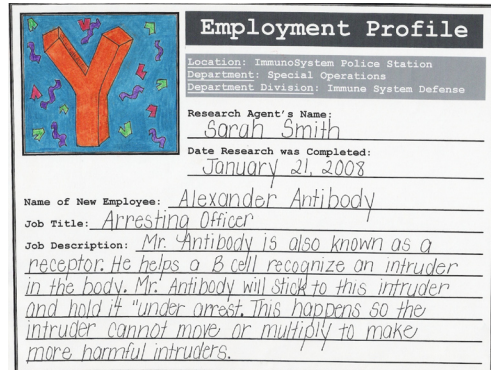 Employment Profile
Location: ImmunoSystem Police Station
Department: Special Operations
Department Division: Immune System Defense
Research Agent's Name:
Sarah Smith
Date Research was Completed:
January 21, 2008
Name of New Employee: Alexander Antibody
Job Title: Arresting Officer
Job Description: Mr. Antibody is also known as a
receptor. He helps a B cell recognize an intruder
in the body. Mr. Antibody will stick to this intruder
and hold it "under arrest. This happens so the
intruder cannot move or multiply to make
more harmful intruders.